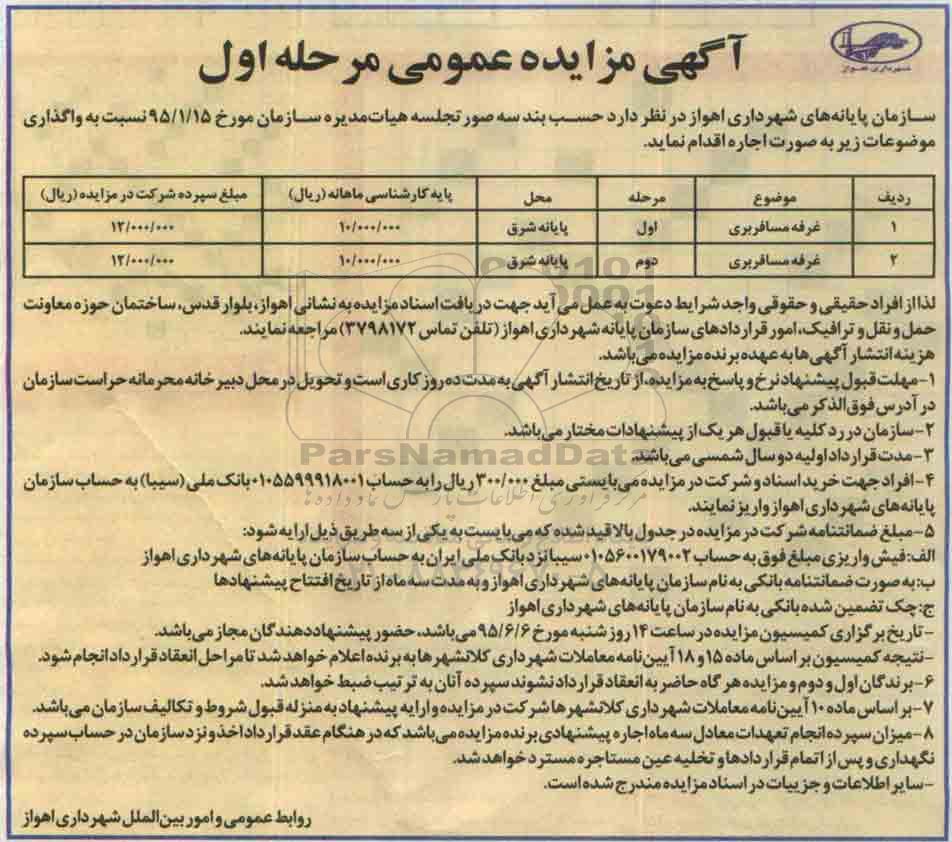 شهرداری اهواز
آگهی مزایده عمومی مرحله اول
سازمان پایانه‌های شهرداری اهواز در نظر دارد حسب بند سه صورتجلسه هیات‌مدیره سازمان مورخ ۹۵/۱/۱۵ نسبت به واگذاری
موضوعات زیر به صورت اجاره اقدام نماید.
ردیف موضوع مرحله محل پایه کارشناسی ماهانه (ریال) مبلغ سپرده شرکت در مزایده (ریال)
۱ غرفه مسافربری اول پایانه شرق ۱۰/۰۰۰/۰۰۰ ۱۲/۰۰۰/۰۰۰
۲ غرفه مسافربری دوم پایانه شرق ۱۰/۰۰۰/۰۰۰ ۱۲/۰۰۰/۰۰۰
لذا از افراد حقیقی و حقوقی واجد شرایط دعوت به عمل می‌آید جهت دریافت اسناد مزایده به نشانی اهواز، بلوار قدس، ساختمان حوزه معاونت
حمل و نقل و ترافیک، امور قراردادهای سازمان پایانه شهرداری اهواز (تلفن تماس ۳۷۹۸۱۷۲) مراجعه نمایند.
هزینه انتشار آگهی‌ها به عهده برنده مزایده می‌باشد.
۱-مهلت قبول پیشنهاد نرخ و پاسخ به مزایده، از تاریخ انتشار آگهی به مدت ده روز کاری است و تحویل در محل دبیرخانه محرمانه حراست سازمان
در آدرس فوق‌الذکر می‌باشد.
۲-سازمان در رد کلیه یا قبول هر یک از پیشنهادات مختار می‌باشد.
ParsNamadData
۳-مدت قرارداد اولیه دو سال شمسی می‌باشد.
۴-افراد جهت خرید اسناد و شرکت در مزایده می‌بایستی مبلغ ۳۰۰/۰۰۰ ریال را به حساب ۰۱۰۵۵۹۹۹۱۸۰۰۱ بانک ملی (سیبا) به حساب سازمان
پایانه‌های شهرداری اهواز واریز نمایند.
۵-مبلغ ضمانتنامه شرکت در مزایده در جدول بالا قید شده که می‌بایست به یکی از سه طریق ذیل ارایه شود:
الف: فیش واریزی مبلغ فوق به حساب ۰۱۰۵۶۰۰۱۷۹۰۰۲ سیبا نزد بانک ملی ایران به حساب سازمان پایانه‌های شهرداری اهواز
ب: به صورت ضمانتنامه بانکی به نام سازمان پایانه‌های شهرداری اهواز و به مدت سه ماه از تاریخ افتتاح پیشنهادها
ج: چک تضمین شده بانکی به نام سازمان پایانه‌های شهرداری اهواز
-تاریخ برگزاری کمیسیون مزایده در ساعت ۱۴ روز شنبه مورخ ۹۵/۶/۶ می‌باشد، حضور پیشنهاددهندگان مجاز می‌باشد.
-نتیجه کمیسیون بر اساس ماده ۱۵ و ۱۸ آیین‌نامه معاملات شهرداری کلانشهرها به برنده اعلام خواهد شد تا مراحل انعقاد قرارداد انجام شود.
۶-برندگان اول و دوم و مزایده هرگاه حاضر به انعقاد قرارداد نشوند سپرده آنان به ترتیب ضبط خواهد شد.
۷-بر اساس ماده ۱۰ آیین‌نامه معاملات شهرداری کلانشهرها شرکت در مزایده و ارایه پیشنهاد به منزله قبول شروط و تکالیف سازمان می‌باشد.
۸-میزان سپرده انجام تعهدات معادل سه ماه اجاره پیشنهادی برنده مزایده می‌باشد که در هنگام عقد قرارداد اخذ و نزد سازمان در حساب سپرده
نگهداری و پس از اتمام قراردادها و تخلیه عین مستاجره مسترد خواهد شد.
-سایر اطلاعات و جزییات در اسناد مزایده مندرج شده است.
روابط عمومی و امور بین‌الملل شهرداری اهواز